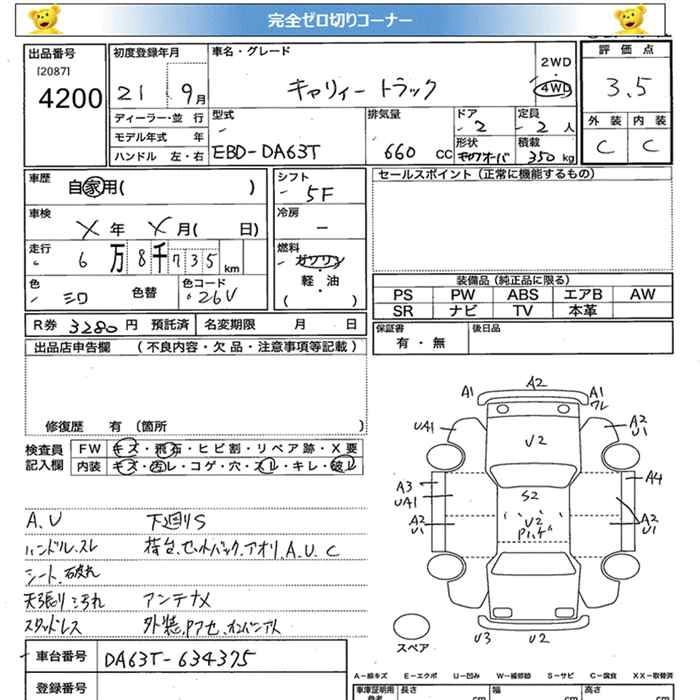 完全ゼロ切りコーナー
出品番号
[2087]
4200
初度登録年月
21 9月
ディーラー・並 行
モデル年式 年
ハンドル 左・右
車名・グレード
キャリィー トラック
2WD
4WD
型式
EBD-DA63T
排気量
660 CC
ドア
2
定員
2 人
形状
積載
350 kg
評価点
3.5
外装 内装
C C
車歴
自家用( )
車検
X 年 X 月( 日)
走行
6万8千735 km
色
シロ 色替
色コード
26V
シフト
5F
冷房
ー
燃料
ガソリン
軽・油
( )
R券 3280 円 預託済
名変期限 月 日
セールスポイント(正常に機能するもの)
装備品(純正品に限る)
PS PW ABS エアB AW
SR ナビ TV 本革
保証書
有・無
後日品
出品店申告欄 (不良内容・欠品・注意事項等記載)
修復歴 有 〔箇所 〕
検査員
記入欄
FW キズ・飛石・ヒビ割・リペア跡・X要
内装 キズ・汚レ・コゲ・穴・スレ・キレ・破レ
A.U 下廻りS
ハンドル.スレ 荷台.セットバック.アオリ.A.U.C
シート.破れ
天張り汚れ アンテナX
スタッドレス
車台番号 DA63T-634375
登録番号
A2
A1
A1
ワレ
UA1
A2
U1
U2
A3
UA1
A4
S2
A2
U1
U2
A2
U1
U3 U2
スペア
A−線キズ E−エクボ U−凹み W−補修跡 S−サビ C−腐食 XX−取替済
車庫証明用
参考
長さ cm
幅 cm
高さ cm